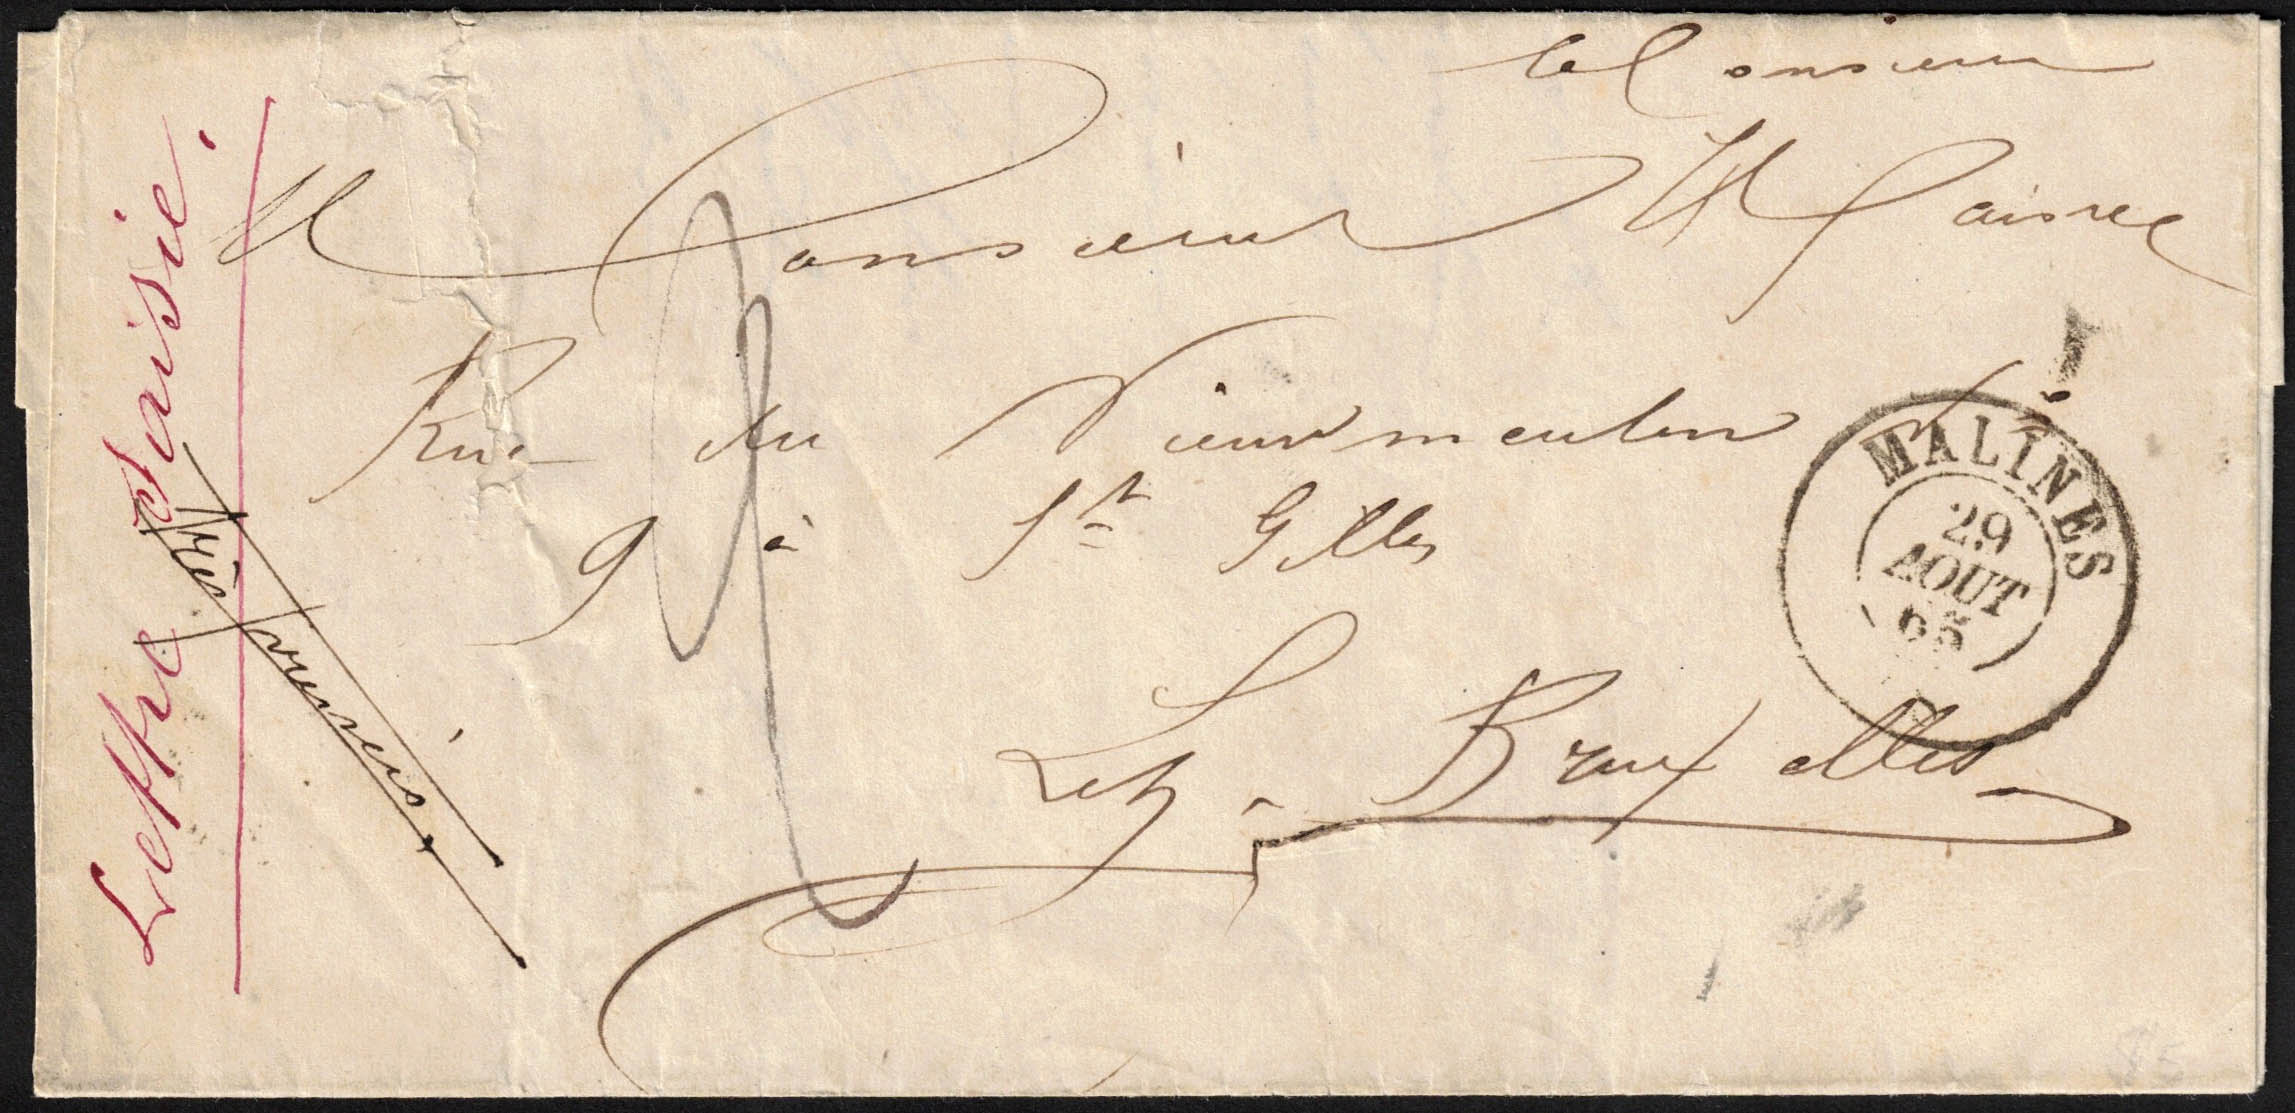 Monsieur
Monsieur
Rue du Vieux moulin N°
9 à St Gilles
Lez-Bruxelles
Lettre saisie.
Très pressée.
MALINES
29
AOUT
65